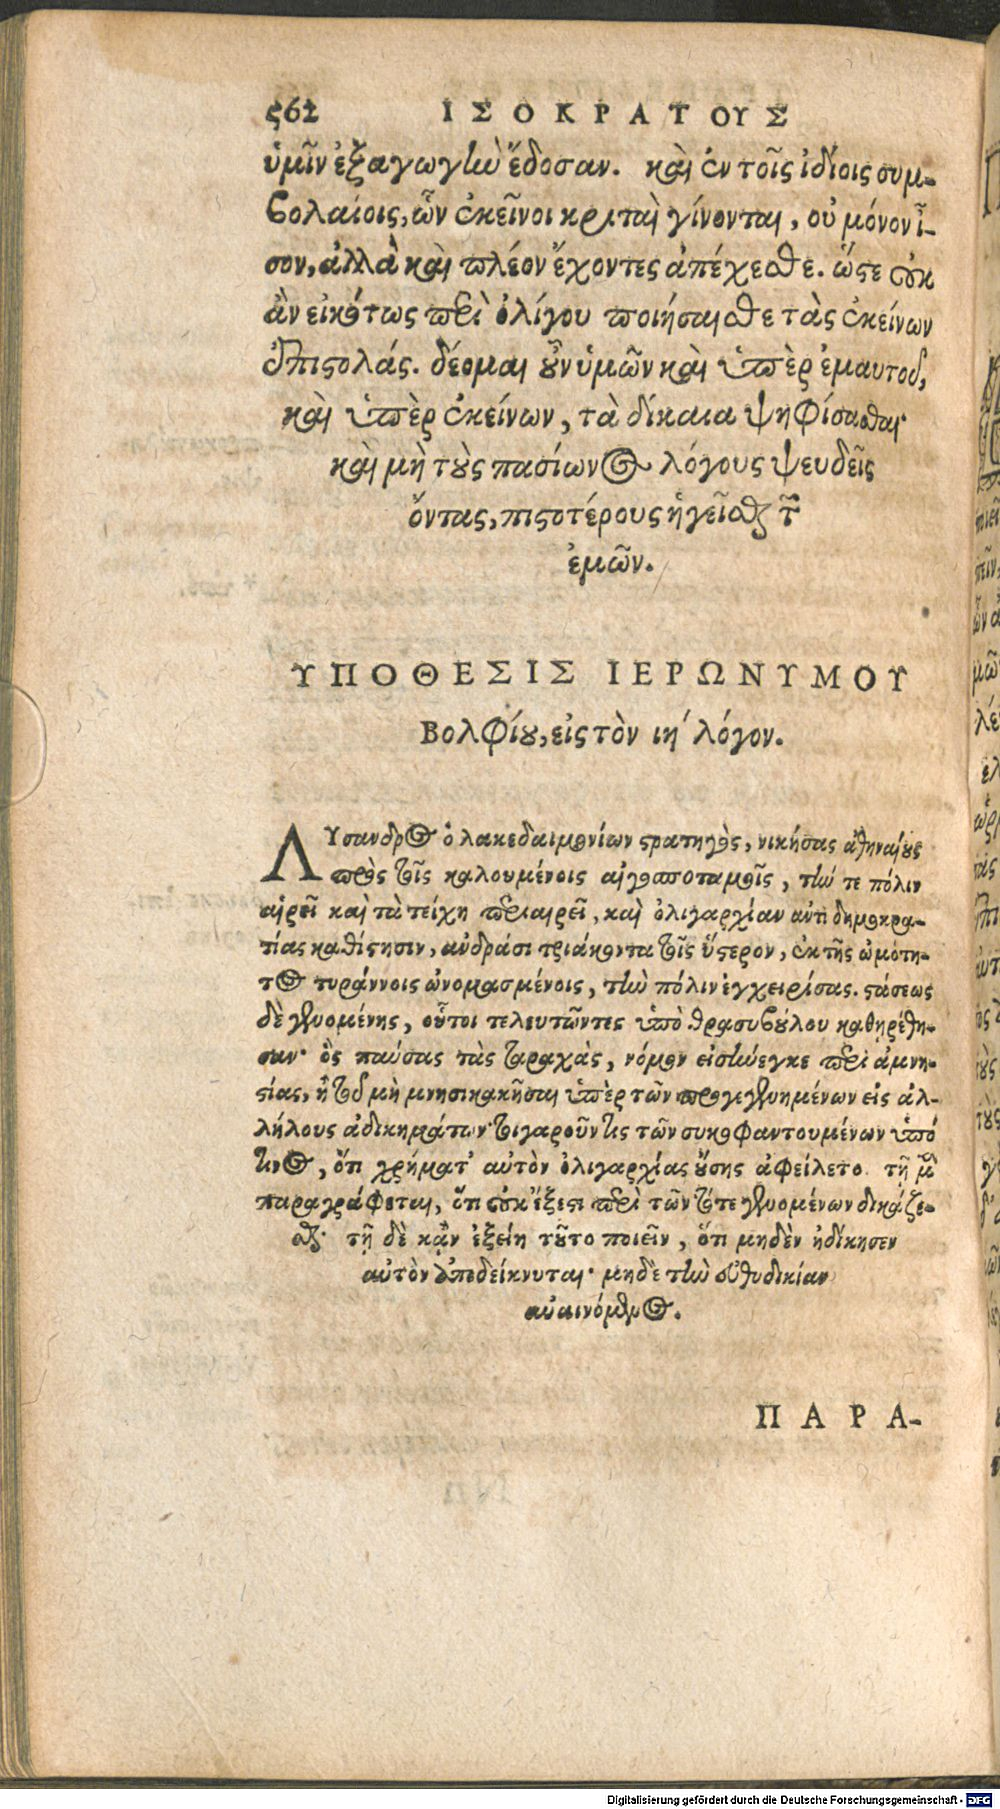 562 ΙΣΟΚΡΑΤΟΥΣ
ὑμῖν ἐξαγωγὴν ἔδοσαν. καὶ ἐν τοῖς ἰδίοις συμ-
βολαίοις, ὧν ἐκεῖνοι κριταὶ γίνονται, οὐ μόνον ἴ-
σον, ἀλλὰ καὶ πλέον ἔχοντες ἀπέχεσθε. ὥστε οὐκ
ἂν εἰκότως περὶ ὀλίγου ποιήσαισθε τὰς ἐκείνων
ἐπιστολάς. δέομαι οὖν ὑμῶν καὶ ὑπὲρ ἐμαυτοῦ,
καὶ ὑπὲρ ἐκείνων, τὰ δίκαια ψηφίσασθαι·
καὶ μὴ τοὺς πασίωνος λόγους ψευδεῖς
ὄντας, πιστοτέρους ἡγεῖσθαι τῶν
ἐμῶν.
ΥΠΟΘΕΣΙΣ ΙΕΡΩΝΥΜΟΥ
Βολφίου, εἰς τὸν ιηʹ λόγον.
ΛΥσανδρος ὁ λακεδαιμονίων στρατηγὸς, νικήσας ἀθηναίους
πρὸς τοῖς καλουμένοις αἰγὸσποταμοῖς, τήν τε πόλιν
αἱρεῖ καὶ τὰ τείχη περιαιρεῖ, καὶ ὀλιγαρχίαν ἀντὶ δημοκρα-
τίας καθίστησιν, ἀνδράσι τριάκοντα τοῖς ὕστερον, ἐκ τῆς ὠμότη-
τος τυράννοις ὠνομασμένοις, τὴν πόλιν ἐγχειρίσας. στάσεως
δὲ γενομένης, οὗτοι τελευτῶντες ὑπὸ θρασυβούλου καθηρέθη-
σαν· ὃς παύσας τὰς ταραχὰς, νόμον εἰσήνεγκε περὶ ἀμνη-
στίας, ἢ τοῦ μὴ μνησικακῆσαι ὑπὲρ τῶν προγεγενημένων εἰς ἀλ-
λήλους ἀδικημάτων· τις γὰρ οὖν τις τῶν συκοφαντουμένων ὑπό
τινος, ὅτι χρήματ' αὐτὸν ὀλιγαρχίας οὔσης ἀφείλετο τῇ μὲν
παραγράφεται, ὅτι οὐκ ἔξεστι περὶ τῶν τότε γενομένων δικάζε-
σθαι· τῇ δὲ κἂν ἐξείη τοῦτο ποιεῖν, ὅτι μηδὲν ἠδίκησεν
αὐτὸν ἐπεδείκνυται· μηδὲ τὴν εὐθυδικίαν
ἀναινόμενος.
ΠΑΡΑ-
Digitalisierung gefördert durch die Deutsche Forschungsgemeinschaft - DFG